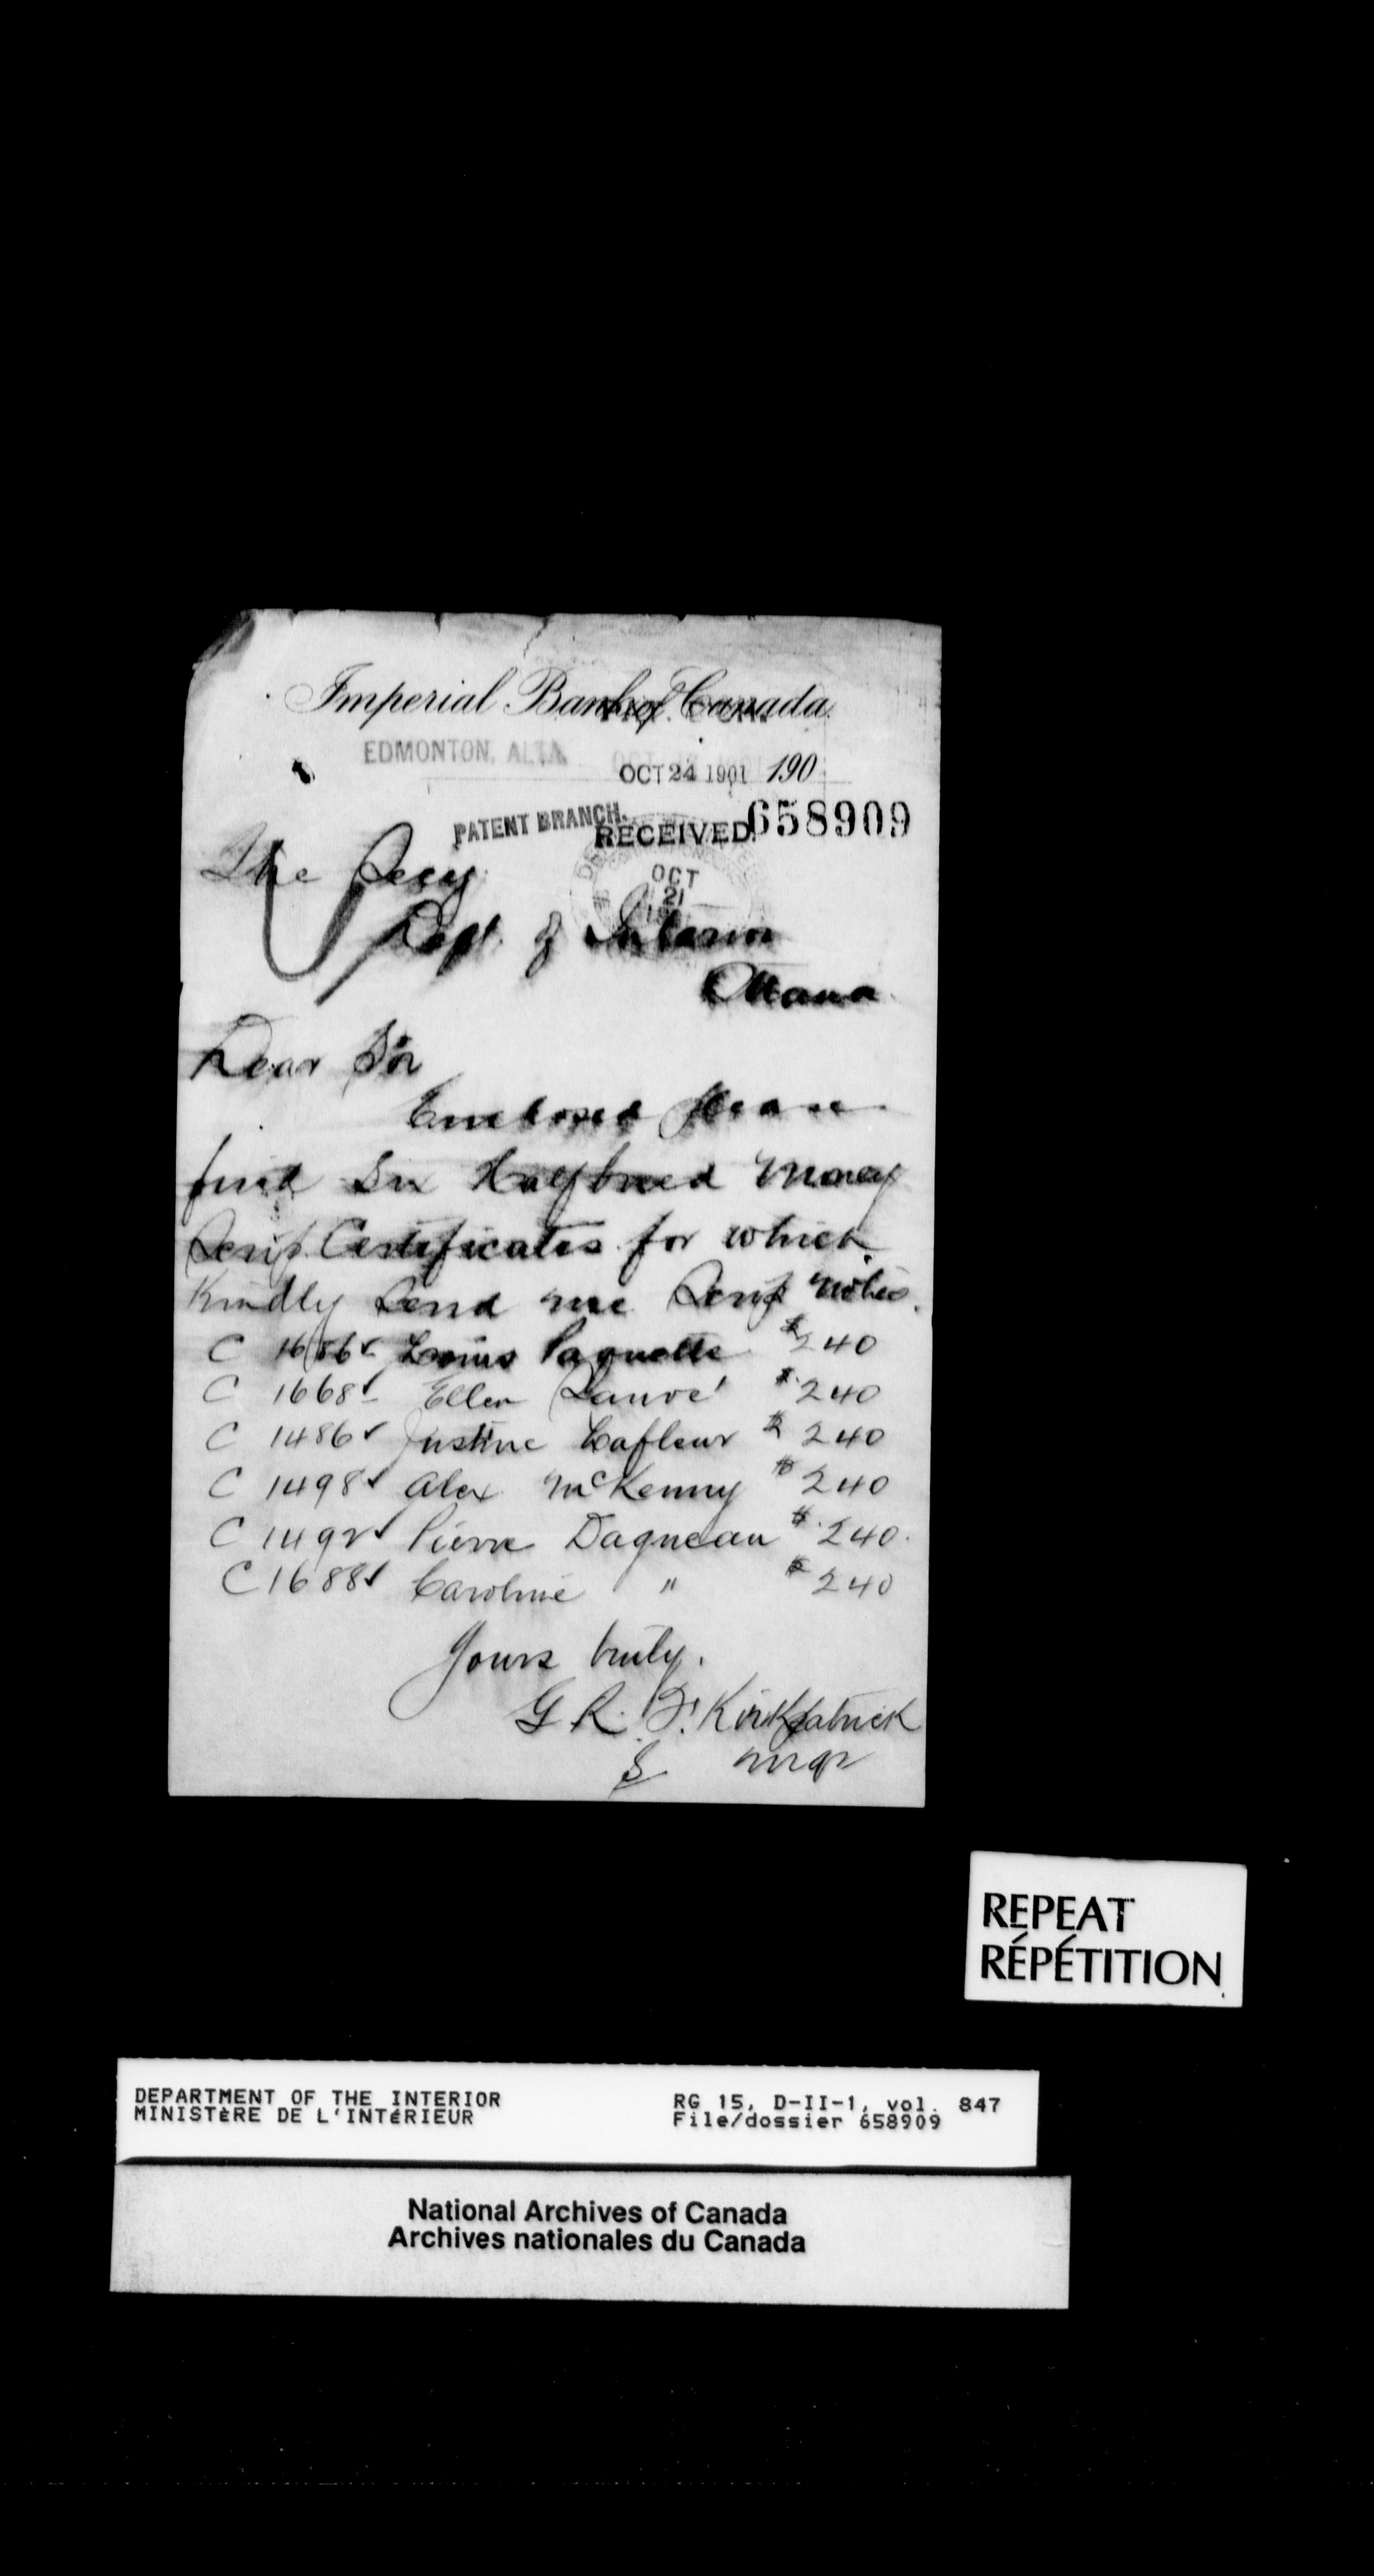 Imperial Bank of Canada
EDMONTON, ALTA.
OCT 24 1901 190
PATENT BRANCH.
RECEIVED 658909
OCT
21
The Secy
Dept. of Interior
Ottawa
Dear Sir
Enclosed please
find Six Halfbreed Money
Scrip Certificates for which
Kindly Send me Scrip notes.
C 1686 Louis Paquette $240
C 1668 Ellen $240
C 1486 Justine Lafleur $240
C 1498 Alex McKenny $240
C 1492 Pierre Dagneau $240.
C 1688 Caroline " $240
Yours truly.
G. R. F. Kirkpatrick
Mgr
REPEAT
RÉPÉTITION
DEPARTMENT OF THE INTERIOR
MINISTèRE DE L'INTéRIEUR
RG 15, D-II-1, vol. 847
File/dossier 658909
National Archives of Canada
Archives nationales du Canada